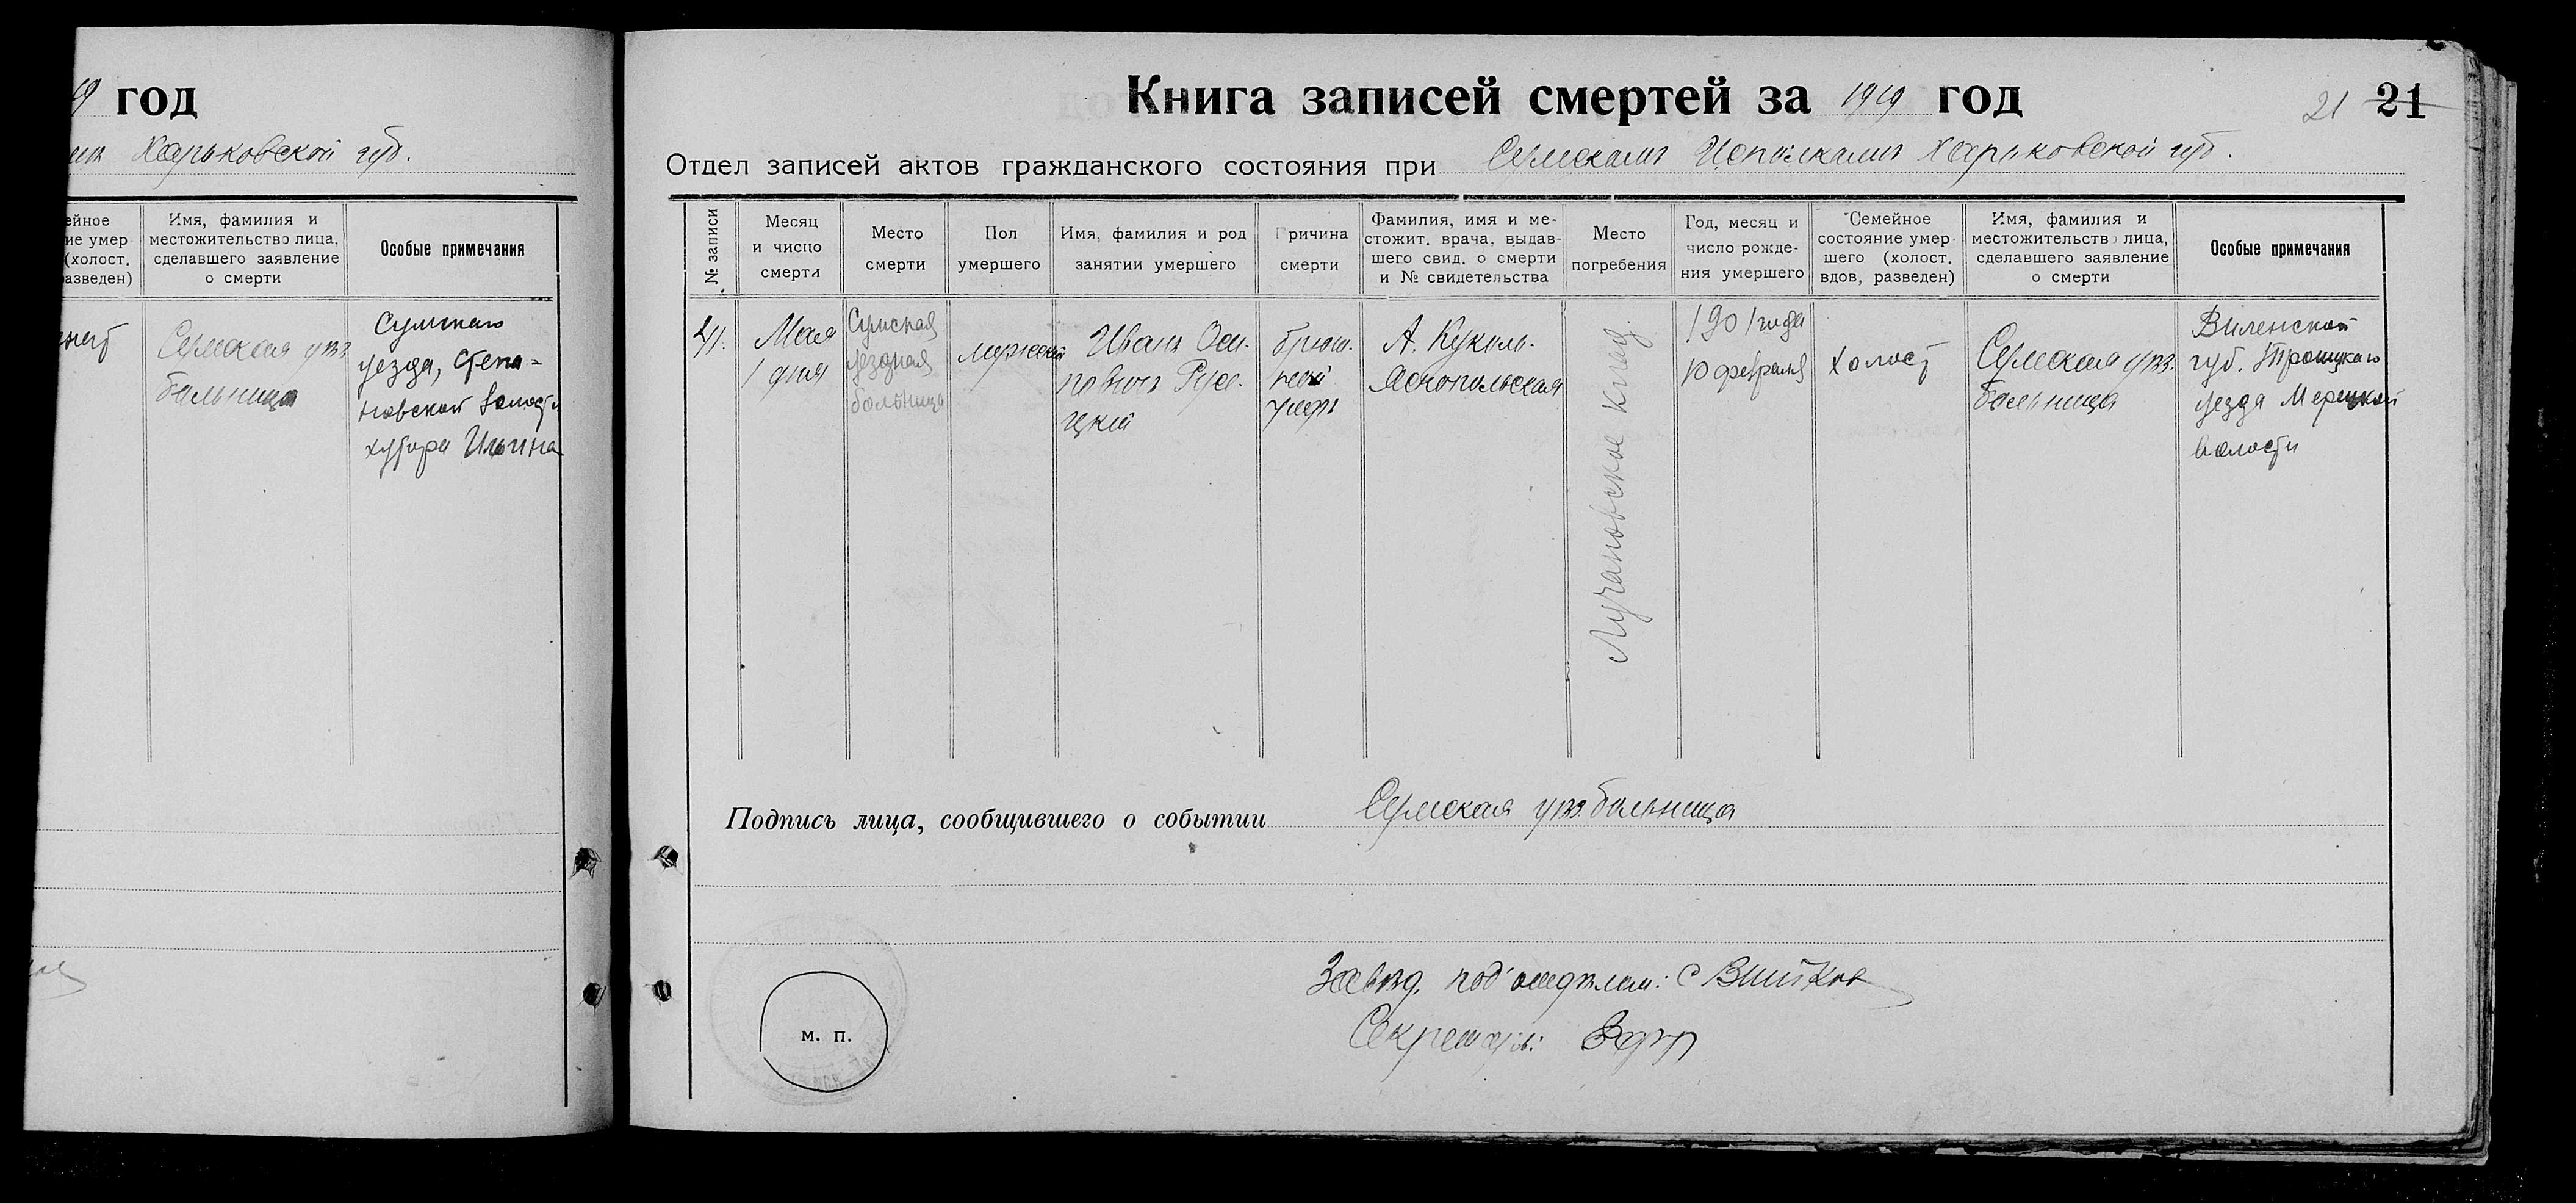 9 год
Харьковской губ.
ейное
ие умер
(холост.
азведен)
Имя, фамилия и
местожительство лица,
сделавшего заявление
о смерти
Особые примечания
Сумская уѣз
больница
Сумскаго
уезда, Степа-
новской волости
хутора Ильина
Книга записей смертей за 1919 год
21 21
Отдел записей актов гражданского состояния при Сумскомъ Исполкомъ Харьковской губ.
№ записи
Месяц
и число
смерти
Место
смерти
Пол
умершего
Имя, фамилия и род
занятии умершего
Причина
смерти
Фамилия, имя и ме-
стожит. врача, выдав-
шего свид. о смерти
и № свидетельства
Место
погребения
Год, месяц и
число рожде-
ния умершего
Семейное
состояние умер-
шего (холост.
вдов, разведен)
Имя, фамилия и
местожительство лица,
сделавшего заявление
о смерти
Особые примечания
21.
Мая
1 дня
Сумская
уездная
больница
мужской
Иванъ Оси-
повичъ Рус-
цкій
брюш-
ной
тифъ
А. Куколь-
Яснопольская
Лучановское клад.
1901 года
10 февраля
холост
Сумская уѣз.
больница
Виленской
губ. Троцкаго
уезда Мерецкой
волости
Подпись лица, сообщившего о событии Сумская уѣз. больница
м. п.
Завѣд. под'отделом:
Секретарь: